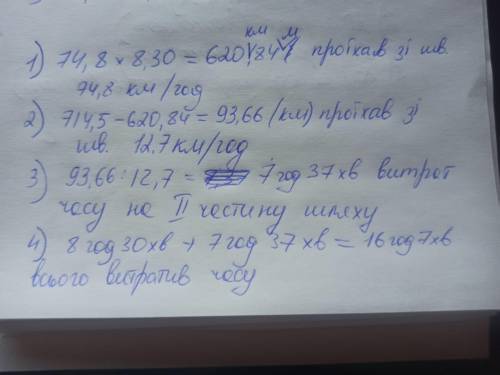 км м
1) 74,8 × 8,30 = 620,84 проїхав зі шв.
74,8 км/год
2) 714,5 - 620,84 = 93,66 (км) проїхав зі
шв. 12,7 км/год
3) 93,66 : 12,7 = 7 год 37 хв витрат
часу на II частину шляху
4) 8 год 30 хв + 7 год 37 хв = 16 год 7 хв
всього витратив часу